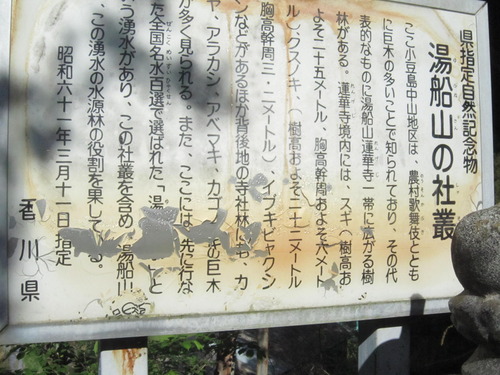 県指定自然記念物
湯船山の社叢
ここ小豆島中山地区は、農村歌舞伎ととも
に巨木の多いことで知られており、その代
表的なものに湯船山蓮華寺一帯に広がる樹
林がある。蓮華寺境内には、スギ(樹高お
よそ二十五メートル、胸高幹周およそ六メート
ル)、クスノキ(樹高およそ二十二メートル
胸高幹周三・二メートル)、イブキビャクシ
ンなどがあるほか背後地の寺社林にも、カ
ヤ、アラカシ、アベマキ、カゴ の巨木
が多く見られる。また、ここには、先に行な
た全国名水百選で選ばれた「湯 と
う湧水があり、この社叢を含め 湯船山
、この湧水の水源林の役割を果して る。
昭和六十一年三月十一日指定
香川県